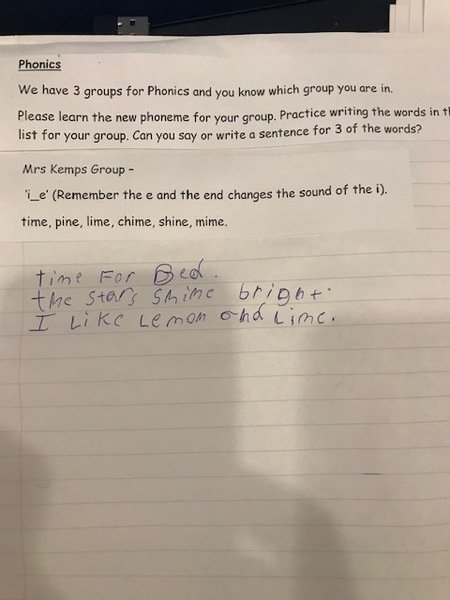 Phonics
We have 3 groups for Phonics and you know which group you are in.
Please learn the new phoneme for your group. Practice writing the words in
list for your group. Can you say or write a sentence for 3 of the words?
Mrs Kemps Group -
'i_e' (Remember the e and the end changes the sound of the i).
time, pine, lime, chime, shine, mime.
time For Bed.
the stars shine bright.
I Like Lemon and Lime.